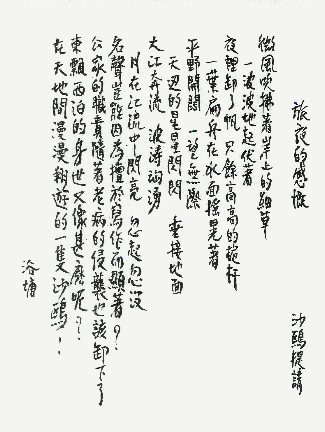 旅夜的感慨
沙鷗提請
微風吹拂著岸上的細草
一波波地起伏著
夜裡卸了帆 只餘高高的桅杆
一葉扁舟在水面搖晃著
平野開闊 一望無際
天边的星星閃閃 垂接地面
大江奔流 波濤洶湧
月在江流中閃亮 忽起忽沒
名聲豈能因為擅於寫作而顯著？
公家的職責隨著老病的侵襲也該卸下了
東飄西泊的身世又像甚麼呢？
在天地間漫漫翱遊的一隻沙鷗！
浴塘